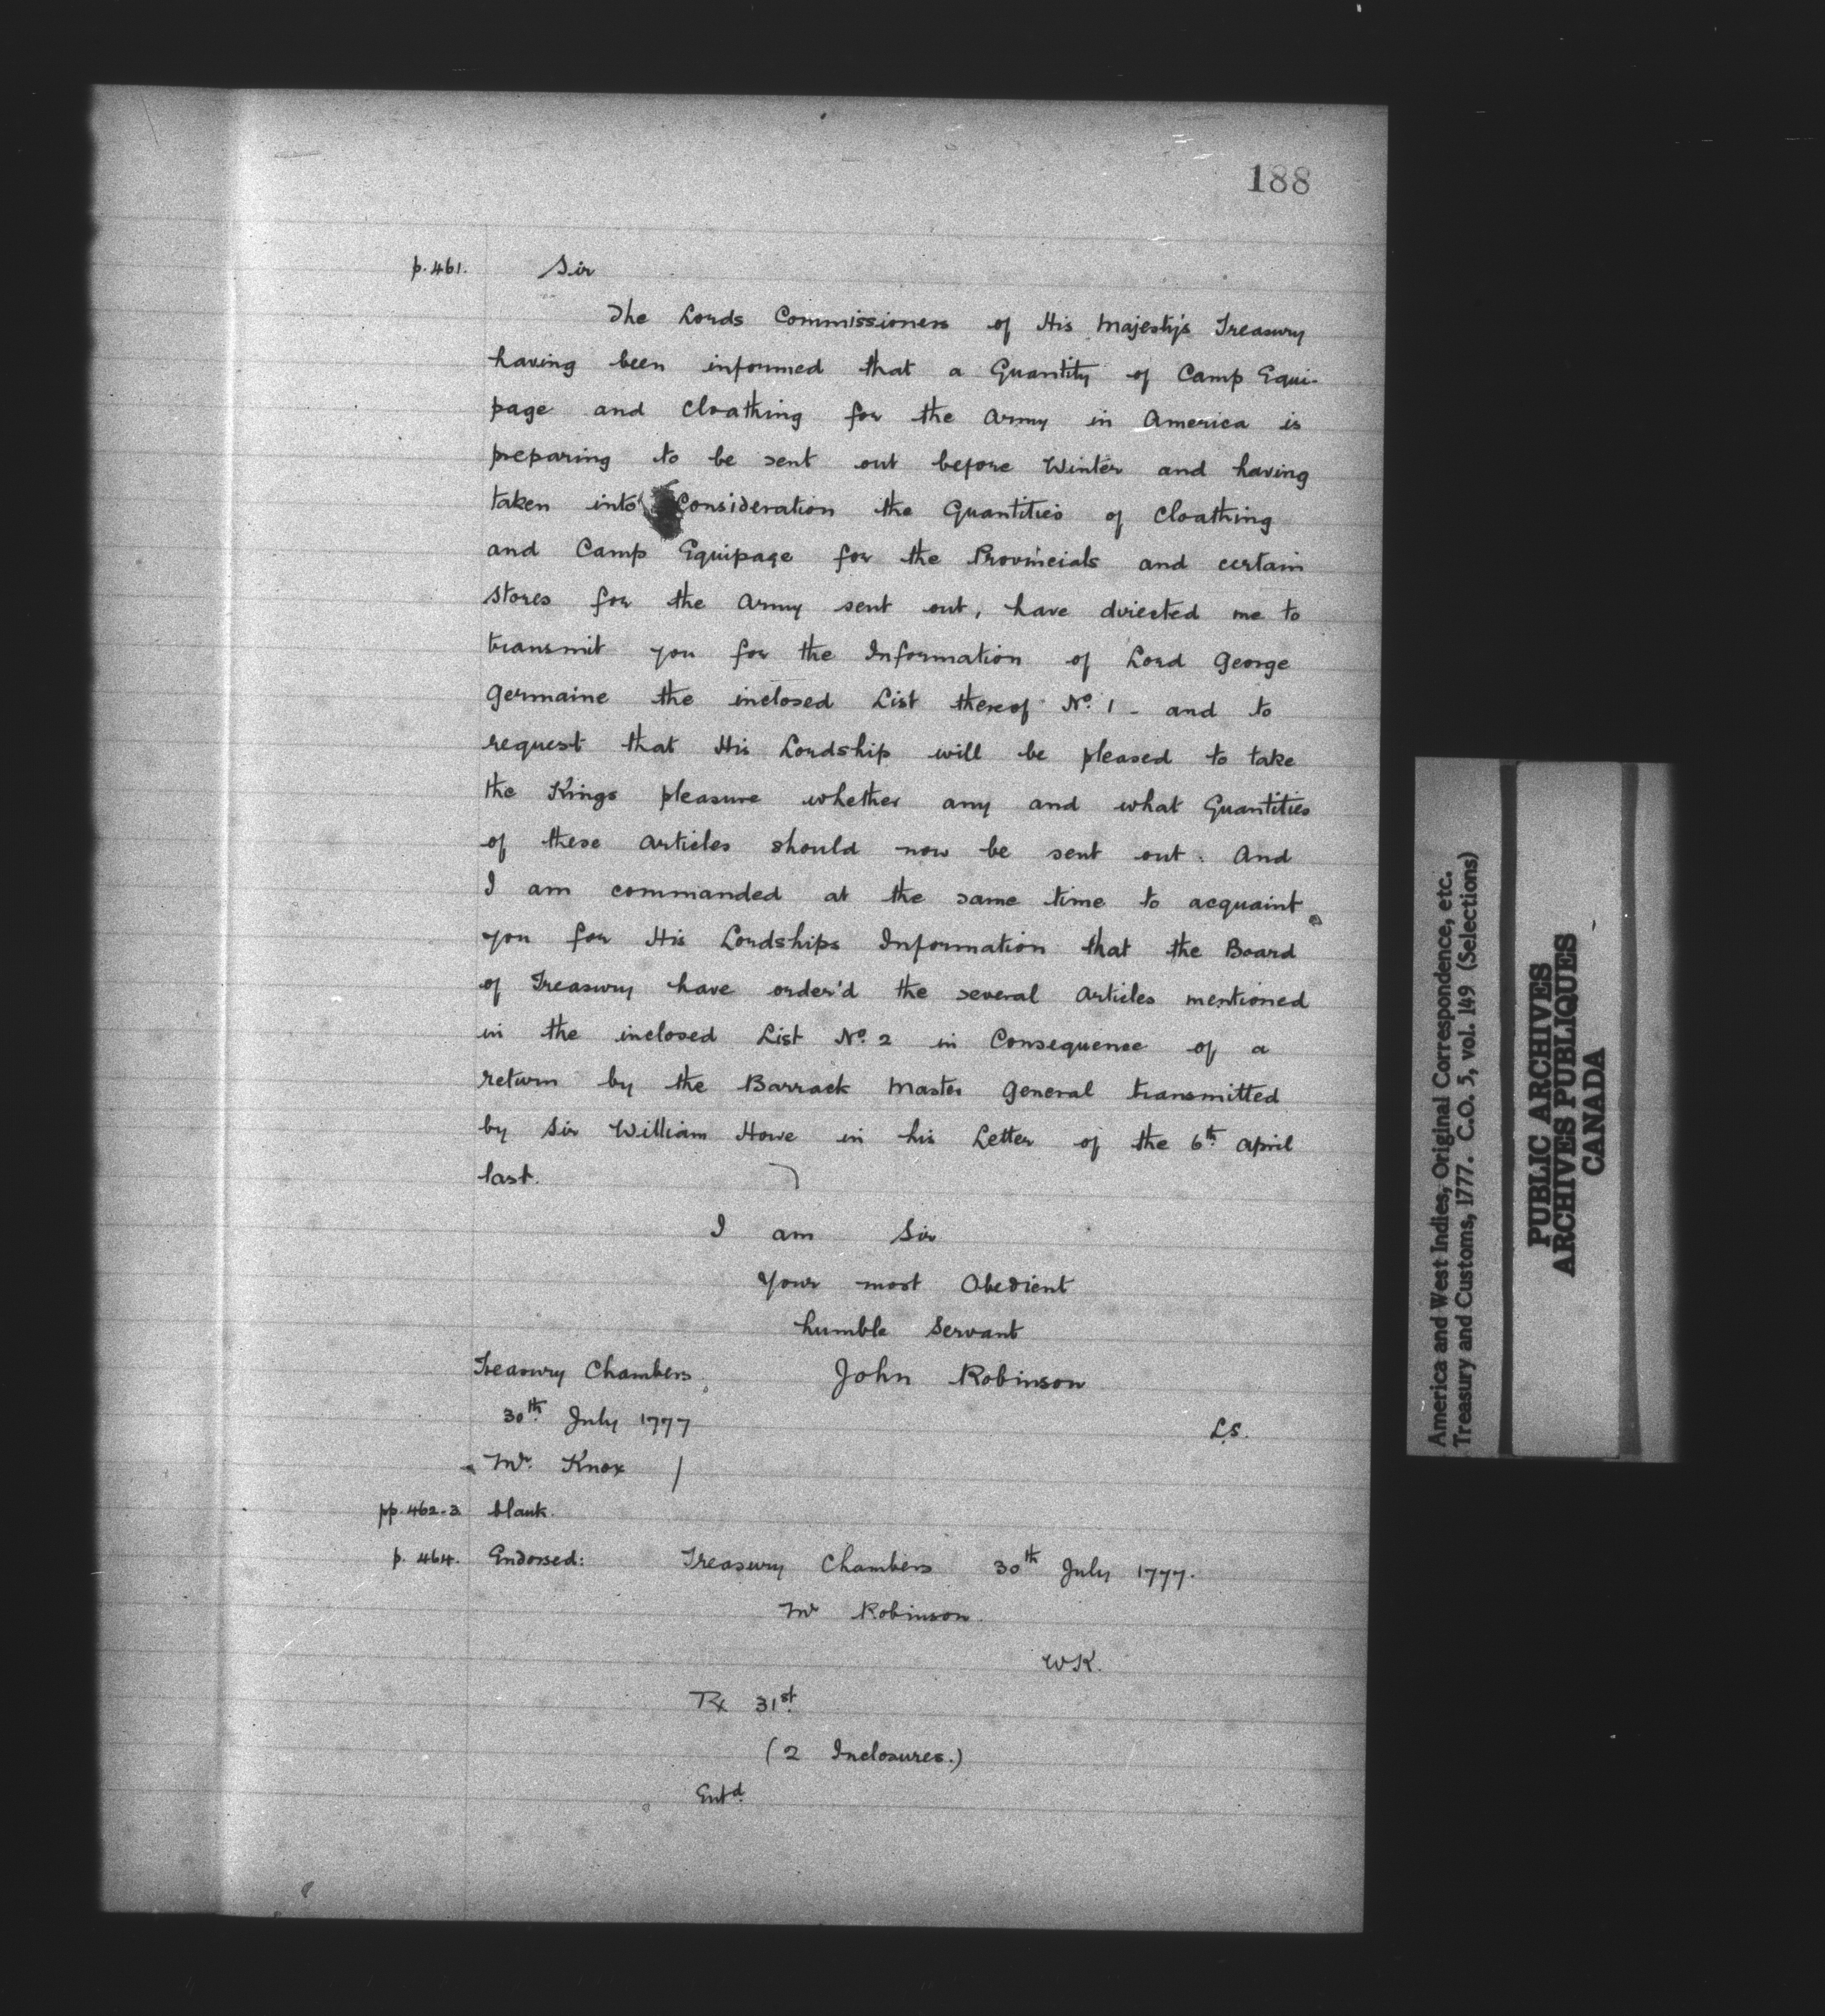 188
p. 461. Sir
The Lords Commissioners of His Majesty's Treasury
having been informed that a Quantity of Camp Equi-
page and Cloathing for the Army in America is
preparing to be sent out before Winter and having
taken into Consideration the Quantities of Cloathing
and Camp Equipage for the Provincials and certain
Stores for the Army sent out, have directed me to
transmit you for the Information of Lord George
Germaine the inclosed List thereof No. 1 - and to
request that His Lordship will be pleased to take
the Kings pleasure whether any and what Quantities
of these Articles should now be sent out. And
I am commanded at the same time to acquaint
you for His Lordships Information that the Board
of Treasury have order'd the several Articles mentioned
in the inclosed List No. 2 in Consequence of a
return by the Barrack Master General transmitted
by Sir William Howe in his Letter of the 6th April
last.
I am Sir
Your most Obedient
humble Servant
Treasury Chambers John Robinson
30th July 1777
L.S.
Mr. Knox /
pp. 462-3. blank.
p. 464. Endorsed: Treasury Chambers 30th July 1777.
Mr Robinson.
WK.
Rx 31st
(2 Inclosures.)
Entd.
America and West Indies, Original Correspondence, etc.
Treasury and Customs, 1777. C.O. 5, vol. 149 (Selections)
PUBLIC ARCHIVES
ARCHIVES PUBLIQUES
CANADA